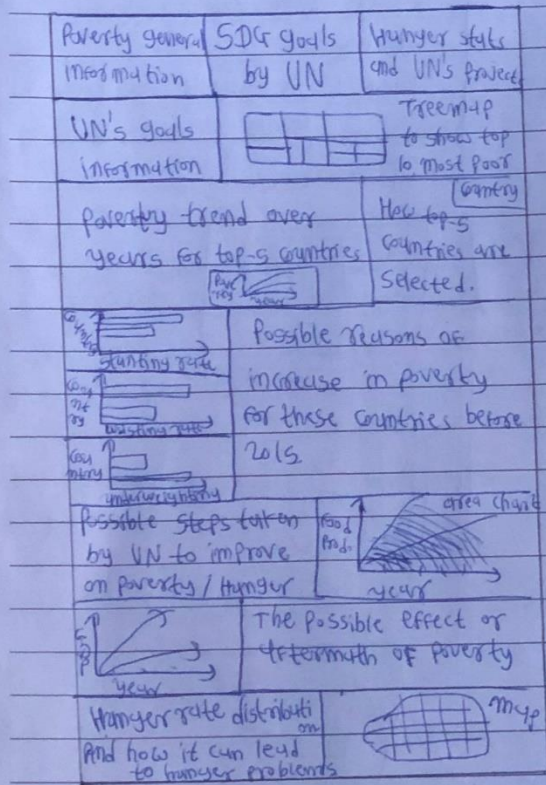 Poverty general
information
SDG goals
by UN
Hunger stats
and UN's Project
UN's goals
information
Treemap
to show top
10 most poor
Country
Poverty trend over
years for top-5 countries
Pov
rty
year
How top-5
countries are
selected.
stunting rate
wasting rate
Cou
ntry
underweighting
Possible reasons of
increase in poverty
for these countries before
2015
Possible steps taken
by UN to improve
on poverty / Hunger
Food
Prod.
area chart
year
year
The possible effect or
Aftermath of poverty
Hunger rate distributi
on
And how it can lead
to hunger problems
Map